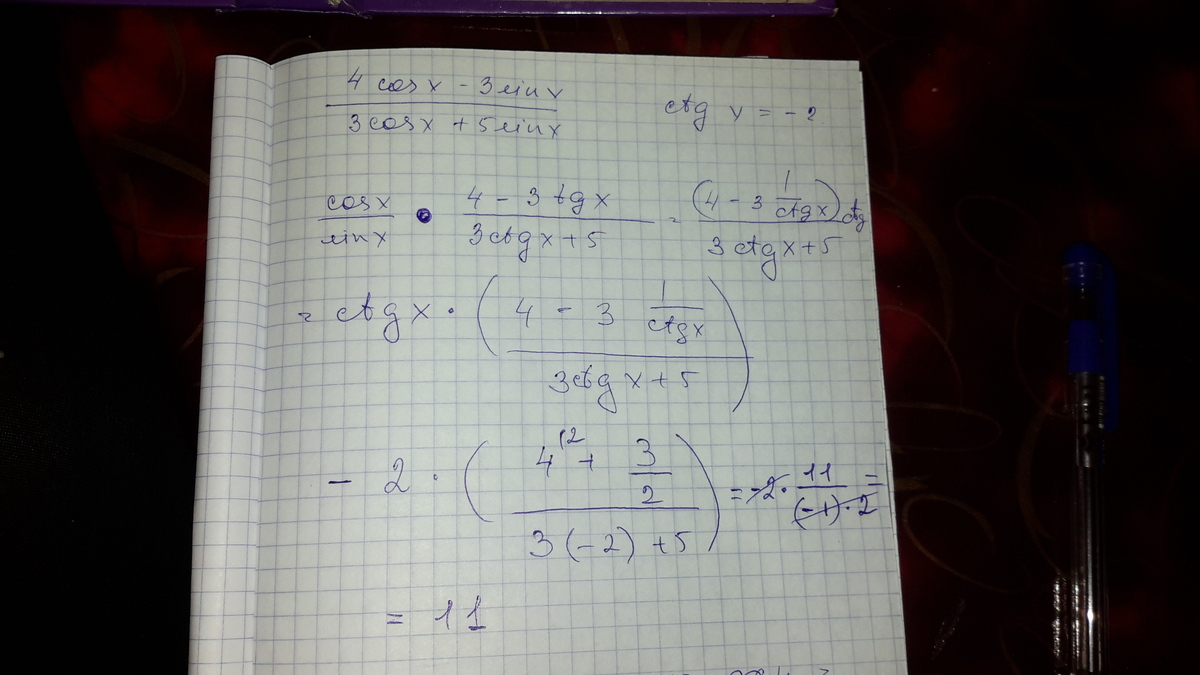 4 cos x - 3 sin x / 3 cos x + 5 sin x    ctg x = - 2
cos x / sin x · 4 - 3 tg x / 3 ctg x + 5 = (4 - 3 1/ctg x) ctg / 3 ctg x + 5
= ctg x · ( 4 - 3 1/ctg x / 3 ctg x + 5 )
- 2 · ( 4 (2 + 3/2 / 3 (-2) + 5 ) = -2 · 11 / (-1) · 2 =
= 11